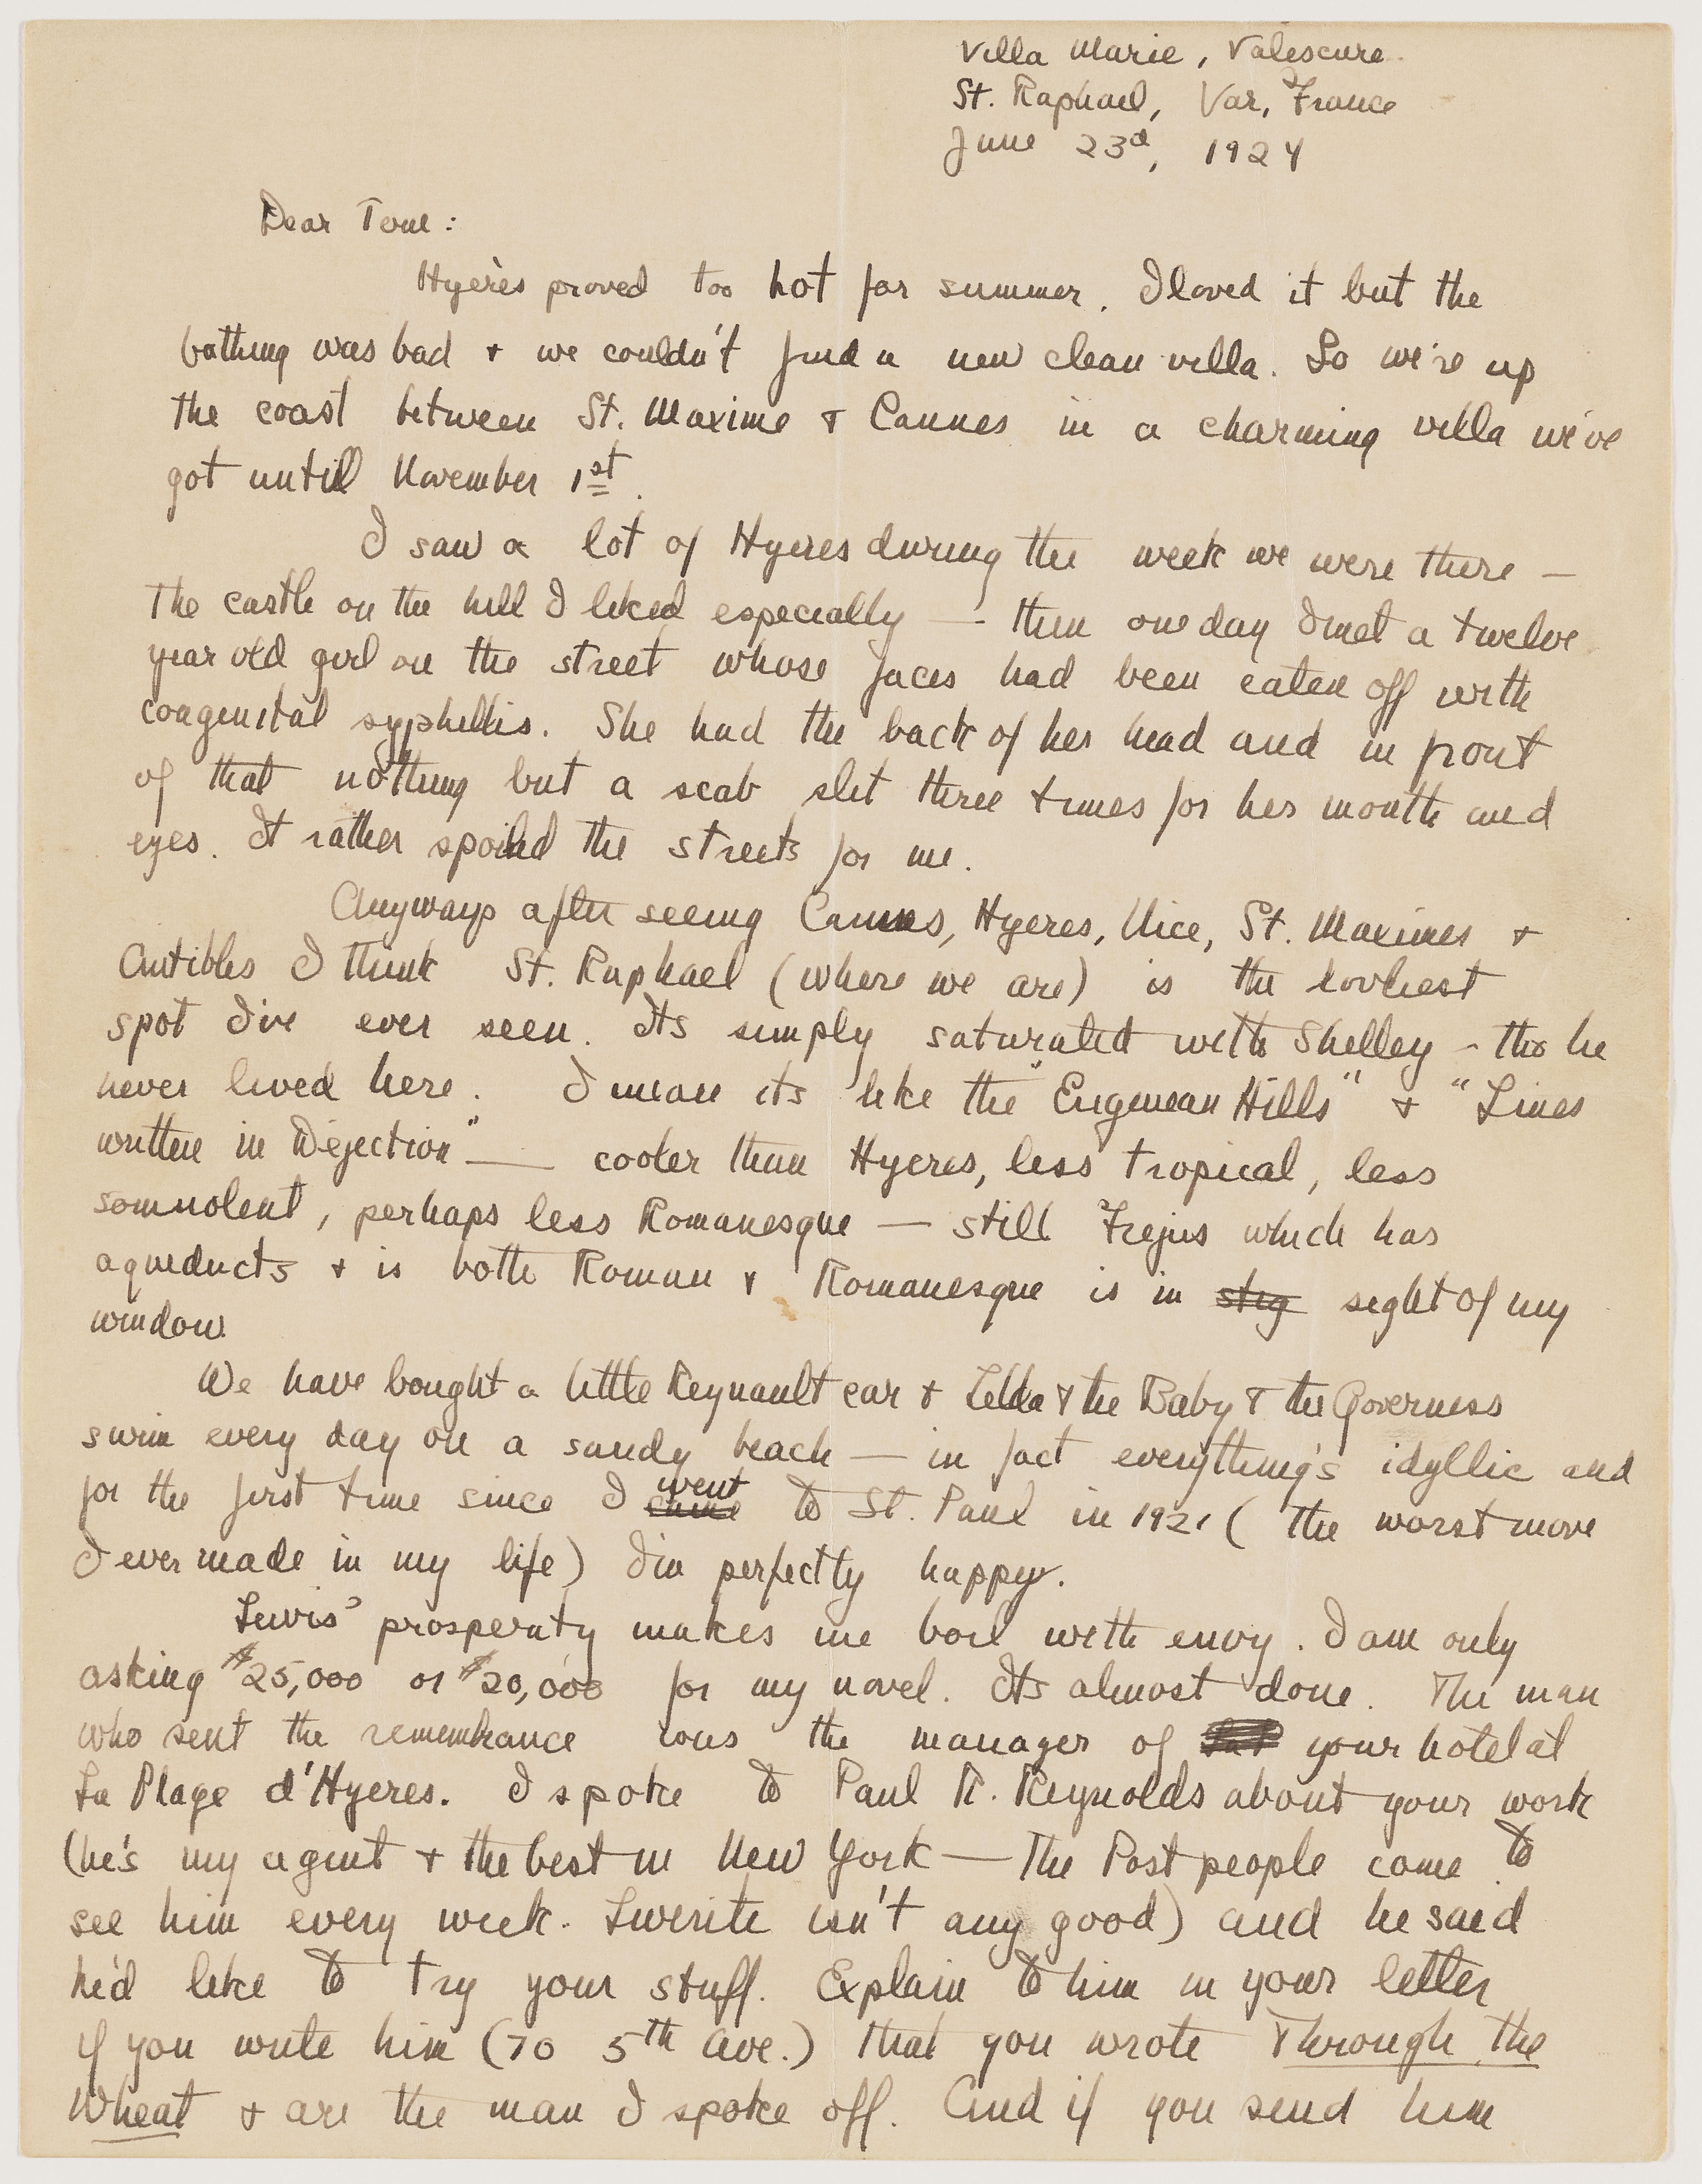 Villa Marie, Valescure
St. Raphael, Var, France
June 23d, 1924
Dear Tom:
Hyeres proved too hot for summer. I loved it but the
bathing was bad + we couldn't find a new clean villa. So we're up
the coast between St. Maxime + Cannes in a charming villa we've
got until November 1st.
I saw a lot of Hyeres during the week we were there —
The castle on the hill I liked especially — then one day I met a twelve
year old girl on the street whose faces had been eaten off with
congenital syphillis. She had the back of her head and in front
of that nothing but a scab slit three times for her mouth and
eyes. It rather spoiled the streets for me.
Anyways after seeing Cannes, Hyeres, Nice, St. Maximes +
Antibles I think St. Raphael (where we are) is the lovliest
spot I've ever seen. Its simply saturated with Shelley - tho he
never lived here. I mean its like the "Eugenean Hills" + "Lines
written in Dejection" — cooler than Hyeres, less tropical, less
somnolent, perhaps less Romanesque — still Frejus which has
aqueducts + is both Roman + Romanesque is in stig sight of my
window
We have bought a little Reynault car + Zelda + the Baby + the Governess
swim every day on a sandy beach — in fact everything's idyllic and
for the first time since I came went to St. Paul in 1921 (the worst move
I ever made in my life) I'm perfectly happy.
Lewis' prosperaty makes me boil with envy. I am only
asking $25,000 or $20,000 for my novel. Its almost done. The man
who sent the remembrance was the manager of your hotel at
La Plage d'Hyeres. I spoke to Paul R. Reynolds about your work
(he's my agent + the best in New York — The Post people come to
see him every week. Liverite isn't any good) and he said
he'd like to try your stuff. Explain to him in your letter
if you write him (70 5th Ave.) that you wrote Through the
Wheat + are the man I spoke off. And if you send him